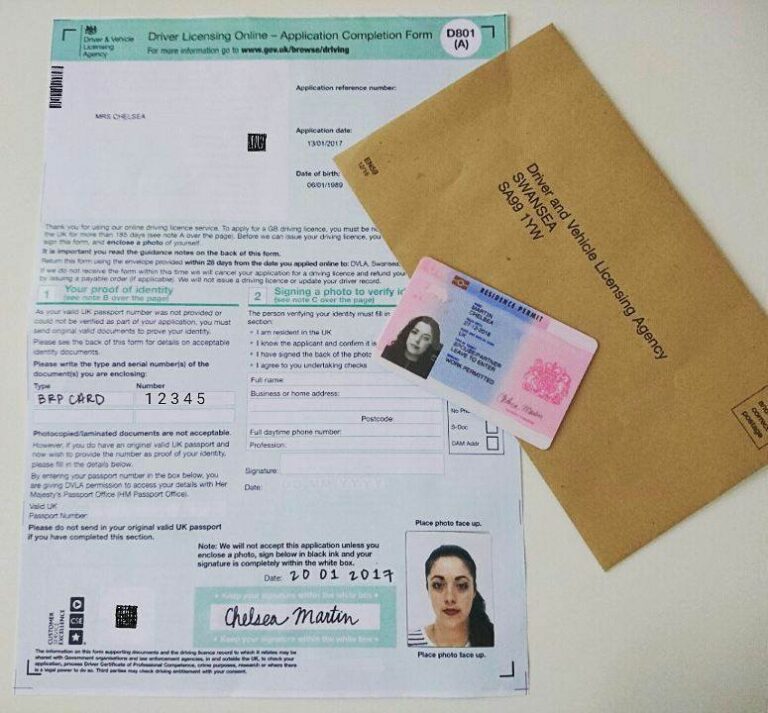 Driver & Vehicle
Licensing
Agency
Driver Licensing Online – Application Completion Form
For more information go to www.gov.uk/browse/driving
D801
(A)
Application reference number:
MRS CHELSEA
Application date:
13/01/2017
Date of birth:
06/01/1989
Thank you for using our online driving licence service. To apply for a GB driving licence, you must be
the UK for more than 185 days (see note A over the page). Before we can issue your driving licence, you
sign this form, and enclose a photo of yourself.
It is important you read the guidance notes on the back of this form.
Return this form using the envelope provided within 28 days from the date you applied online to: DVLA, Swansea
If we do not receive the form within this time we will cancel your application for a driving licence and refund your
by issuing a payable order (if applicable). We will not issue a driving licence or update your driver record.
1 Your proof of identity
(see note B over the page)
As your valid UK passport number was not provided or
could not be verified as part of your application, you must
send original valid documents to prove your identity.
Please see the back of this form for details on acceptable
identity documents.
Please write the type and serial number(s) of the
document(s) you are enclosing:
Type Number
BRP CARD 12345
Photocopied/laminated documents are not acceptable.
However, if you do have an original valid UK passport and
now wish to provide the number as proof of your identity,
please fill in the details below.
By entering your passport number in the box below, you
are giving DVLA permission to access your details with Her
Majesty's Passport Office (HM Passport Office).
Valid UK
Passport Number:
Please do not send in your original valid UK passport
if you have completed this section.
2 Signing a photo to verify
(see note C over the page)
The person verifying your identity must fill in
section:
• I am resident in the UK
• I know the applicant and confirm it is
• I have signed the back of the photo
• I agree to undertaking checks
Full name:
Business or home address:
Postcode:
Full daytime phone number:
Profession:
Signature:
Date:
No Ph
S-Doc
DAM Addr
Note: We will not accept this application unless you
enclose a photo, sign below in black ink and your
signature is completely within the white box.
Date: 20 01 2017
• Keep your signature within the white box •
Chelsea Martin
• Keep your signature within the white box •
Place photo face up.
Place photo face up.
CUSTOMER
SERVICE
EXCELLENCE
CSE
The information on this form supporting documents and the driving licence record to which it relates may be
shared with Government organisations and law enforcement agencies, in and outside the UK, to check your
application, process Driver Certificate of Professional Competence, crime purposes, research or where there
is a legal power to do so. Third parties may check driving entitlement with your consent.
RESIDENCE PERMIT
MARTIN
CHELSEA
UK
SPOUSE/PARTNER
LEAVE TO ENTER
WORK PERMITTED
Chelsea Martin
Driver and Vehicle Licensing Agency
SWANSEA
SA99 1YW
correct
postage